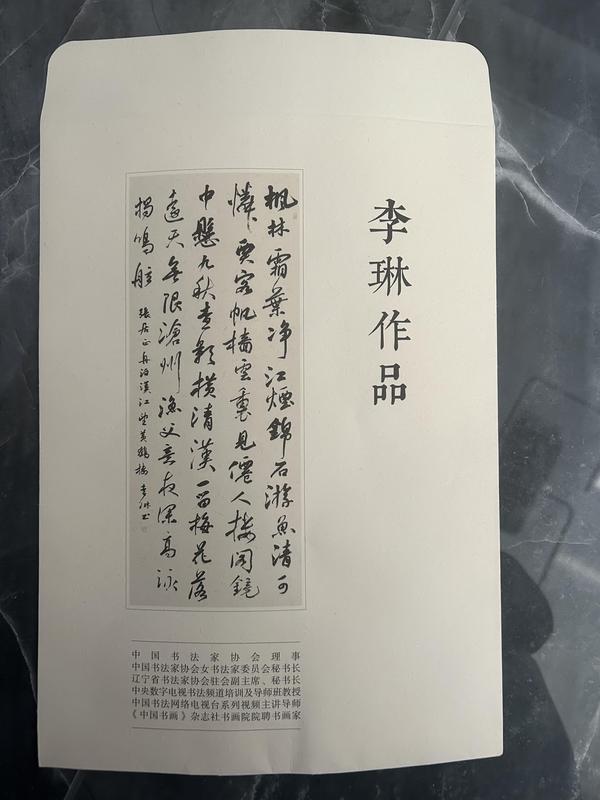 李琳作品
楓林霜葉净江煙錦石游魚清可
憐賈客帆樯雲裏見僊人樓閣鏡
中懸九秋查影横清漢一笛梅花落
遠天無限滄州漁父意夜深高詠
獨鳴舷
張居正舟泊漢江望黄鶴樓 李琳书
中国书法家协会理事
中国书法家协会女书法家委员会秘书长
辽宁省书法家协会驻会副主席、秘书长
中央数字电视书法频道培训及导师班教授
中国书法网络电视台系列视频主讲导师
《中国书画》杂志社书画院院聘书画家